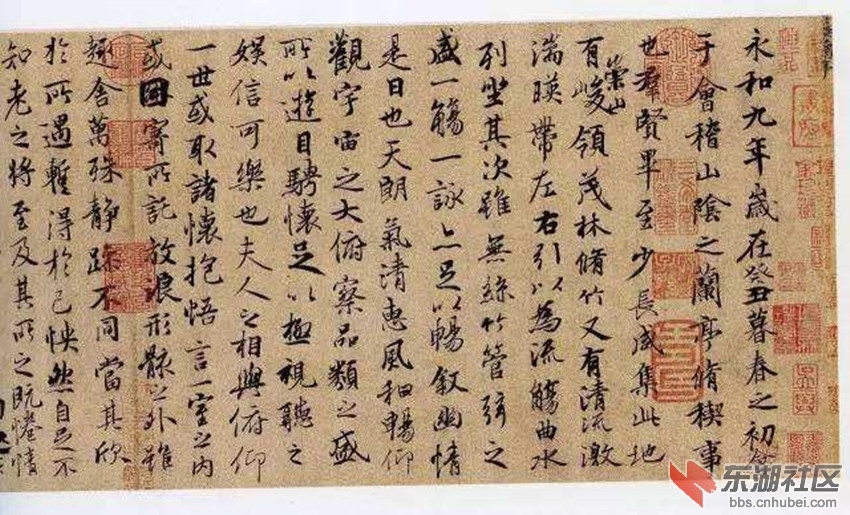 永和九年歲在癸丑暮春之初會
于會稽山陰之蘭亭脩稧事
也羣賢畢至少長咸集此地
有崇山峻領茂林脩竹又有清流激
湍暎帶左右引以為流觴曲水
列坐其次雖無絲竹管弦之
盛一觴一詠亦足以暢敘幽情
是日也天朗氣清惠風和暢仰
觀宇宙之大俯察品類之盛
所以遊目騁懷足以極視聽之
娛信可樂也夫人之相與俯仰
一世或取諸懷抱悟言一室之內
或因寄所託放浪形骸之外雖
趣舍萬殊靜躁不同當其欣
於所遇暫得於己怏然自足不
知老之將至及其所之既惓情
东湖社区
bbs.cnhubei.com